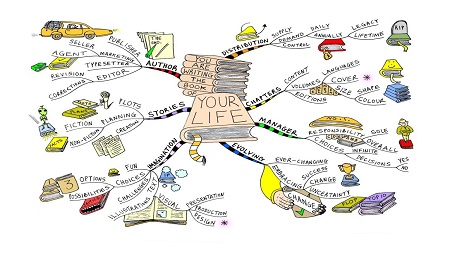 YOU
ARE
WRITING
THE
BOOK
OF
YOUR
LIFE
AUTHOR
PUBLISHER
SELLER
MARKETING
AGENT
TYPESETTER
REVISION
EDITOR
CORRECTIONS
STORIES
PLOTS
PLANNING
FICTION
NON-FICTION
CREATING
IMAGINATION
FUN
CHOICES
OPTIONS
POSSIBILITIES
CHALLENGE
TEXT
VISUAL
ILLUSTRATIONS
PRESENTATION
PRODUCTION
DESIGN
DISTRIBUTION
SUPPLY
DEMAND
CONTROL
DAILY
ANNUALLY
LEGACY
LIFETIME
RIP
CHAPTERS
CONTENT
VOLUMES
EDITIONS
LANGUAGES
COVER
SIZE
SHAPE
COLOUR
MANAGER
RESPONSIBILITY
SOLE
OVERALL
CHOICES
INFINITE
DECISIONS
YES
NO
EVOLVING
EVER-CHANGING
SUCCESS
CHANGE
EMBRACING
UNCERTAINTY
CHANGE
THE
END
3